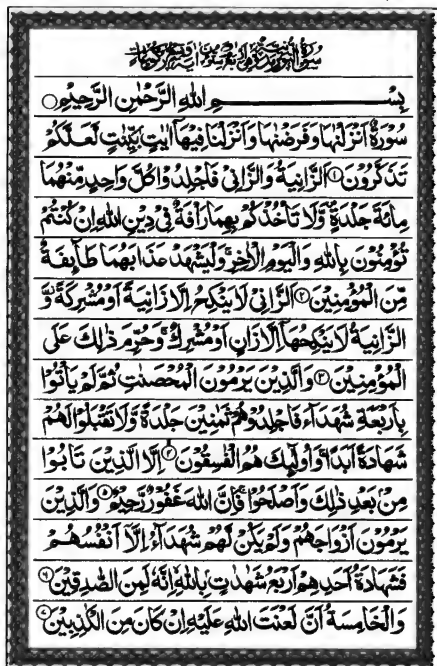 سُوْرَةُ النُّوْرِ مَدَنِيَّةٌ
بِسْمِ اللهِ الرَّحْمٰنِ الرَّحِيْمِ
سُوْرَةٌ اَنْزَلْنٰهَا وَفَرَضْنٰهَا وَاَنْزَلْنَا فِيْهَآ اٰيٰتٍ بَيِّنٰتٍ لَّعَلَّكُمْ
تَذَكَّرُوْنَ ۱ اَلزَّانِيَةُ وَالزَّانِيْ فَاجْلِدُوْا كُلَّ وَاحِدٍ مِّنْهُمَا
مِائَةَ جَلْدَةٍ وَّلَا تَاْخُذْكُمْ بِهِمَا رَاْفَةٌ فِيْ دِيْنِ اللهِ اِنْ كُنْتُمْ
تُؤْمِنُوْنَ بِاللهِ وَالْيَوْمِ الْاٰخِرِ وَلْيَشْهَدْ عَذَابَهُمَا طَآىِٕفَةٌ
مِّنَ الْمُؤْمِنِيْنَ ۲ اَلزَّانِيْ لَا يَنْكِحُ اِلَّا زَانِيَةً اَوْ مُشْرِكَةً وَّ
الزَّانِيَةُ لَا يَنْكِحُهَآ اِلَّا زَانٍ اَوْ مُشْرِكٌ وَحُرِّمَ ذٰلِكَ عَلَى
الْمُؤْمِنِيْنَ ۳ وَالَّذِيْنَ يَرْمُوْنَ الْمُحْصَنٰتِ ثُمَّ لَمْ يَاْتُوْا
بِاَرْبَعَةِ شُهَدَآءَ فَاجْلِدُوْهُمْ ثَمٰنِيْنَ جَلْدَةً وَّلَا تَقْبَلُوْا لَهُمْ
شَهَادَةً اَبَدًا وَاُولٰٓىِٕكَ هُمُ الْفٰسِقُوْنَ ۴ اِلَّا الَّذِيْنَ تَابُوْا
مِنْۢ بَعْدِ ذٰلِكَ وَاَصْلَحُوْا فَاِنَّ اللهَ غَفُوْرٌ رَّحِيْمٌ ۵ وَالَّذِيْنَ
يَرْمُوْنَ اَزْوَاجَهُمْ وَلَمْ يَكُنْ لَّهُمْ شُهَدَآءُ اِلَّآ اَنْفُسُهُمْ
فَشَهَادَةُ اَحَدِهِمْ اَرْبَعُ شَهٰدٰتٍۭ بِاللهِ اِنَّهٗ لَمِنَ الصّٰدِقِيْنَ ۶
وَالْخَامِسَةُ اَنَّ لَعْنَتَ اللهِ عَلَيْهِ اِنْ كَانَ مِنَ الْكٰذِبِيْنَ ۷